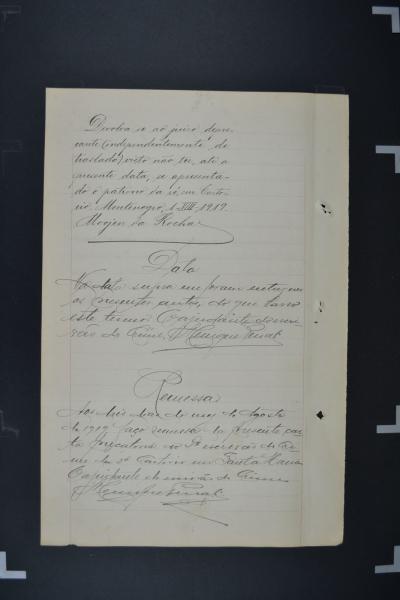 Devolva-se ao juizo depre-
cante (independentemente de
traslado) visto não ter, até a
presente data, se apresenta-
do o patrono da ré, em Carto-
rio. Montenegro, 1-VIII-1919.
Moysen da Rocha
Data
Na data supra me foram entregues
os presentes autos, do que lavro
este termo. O ajudante do escri-
vão do Crime,
Remessa
Aos dois dias do mez de Agosto
de 1919 faço remessa da presente car-
ta precatoria ao Sr escrivão do Cri-
me do 2º Cartorio em Santa Maria
O ajudante do escrivão do Crime